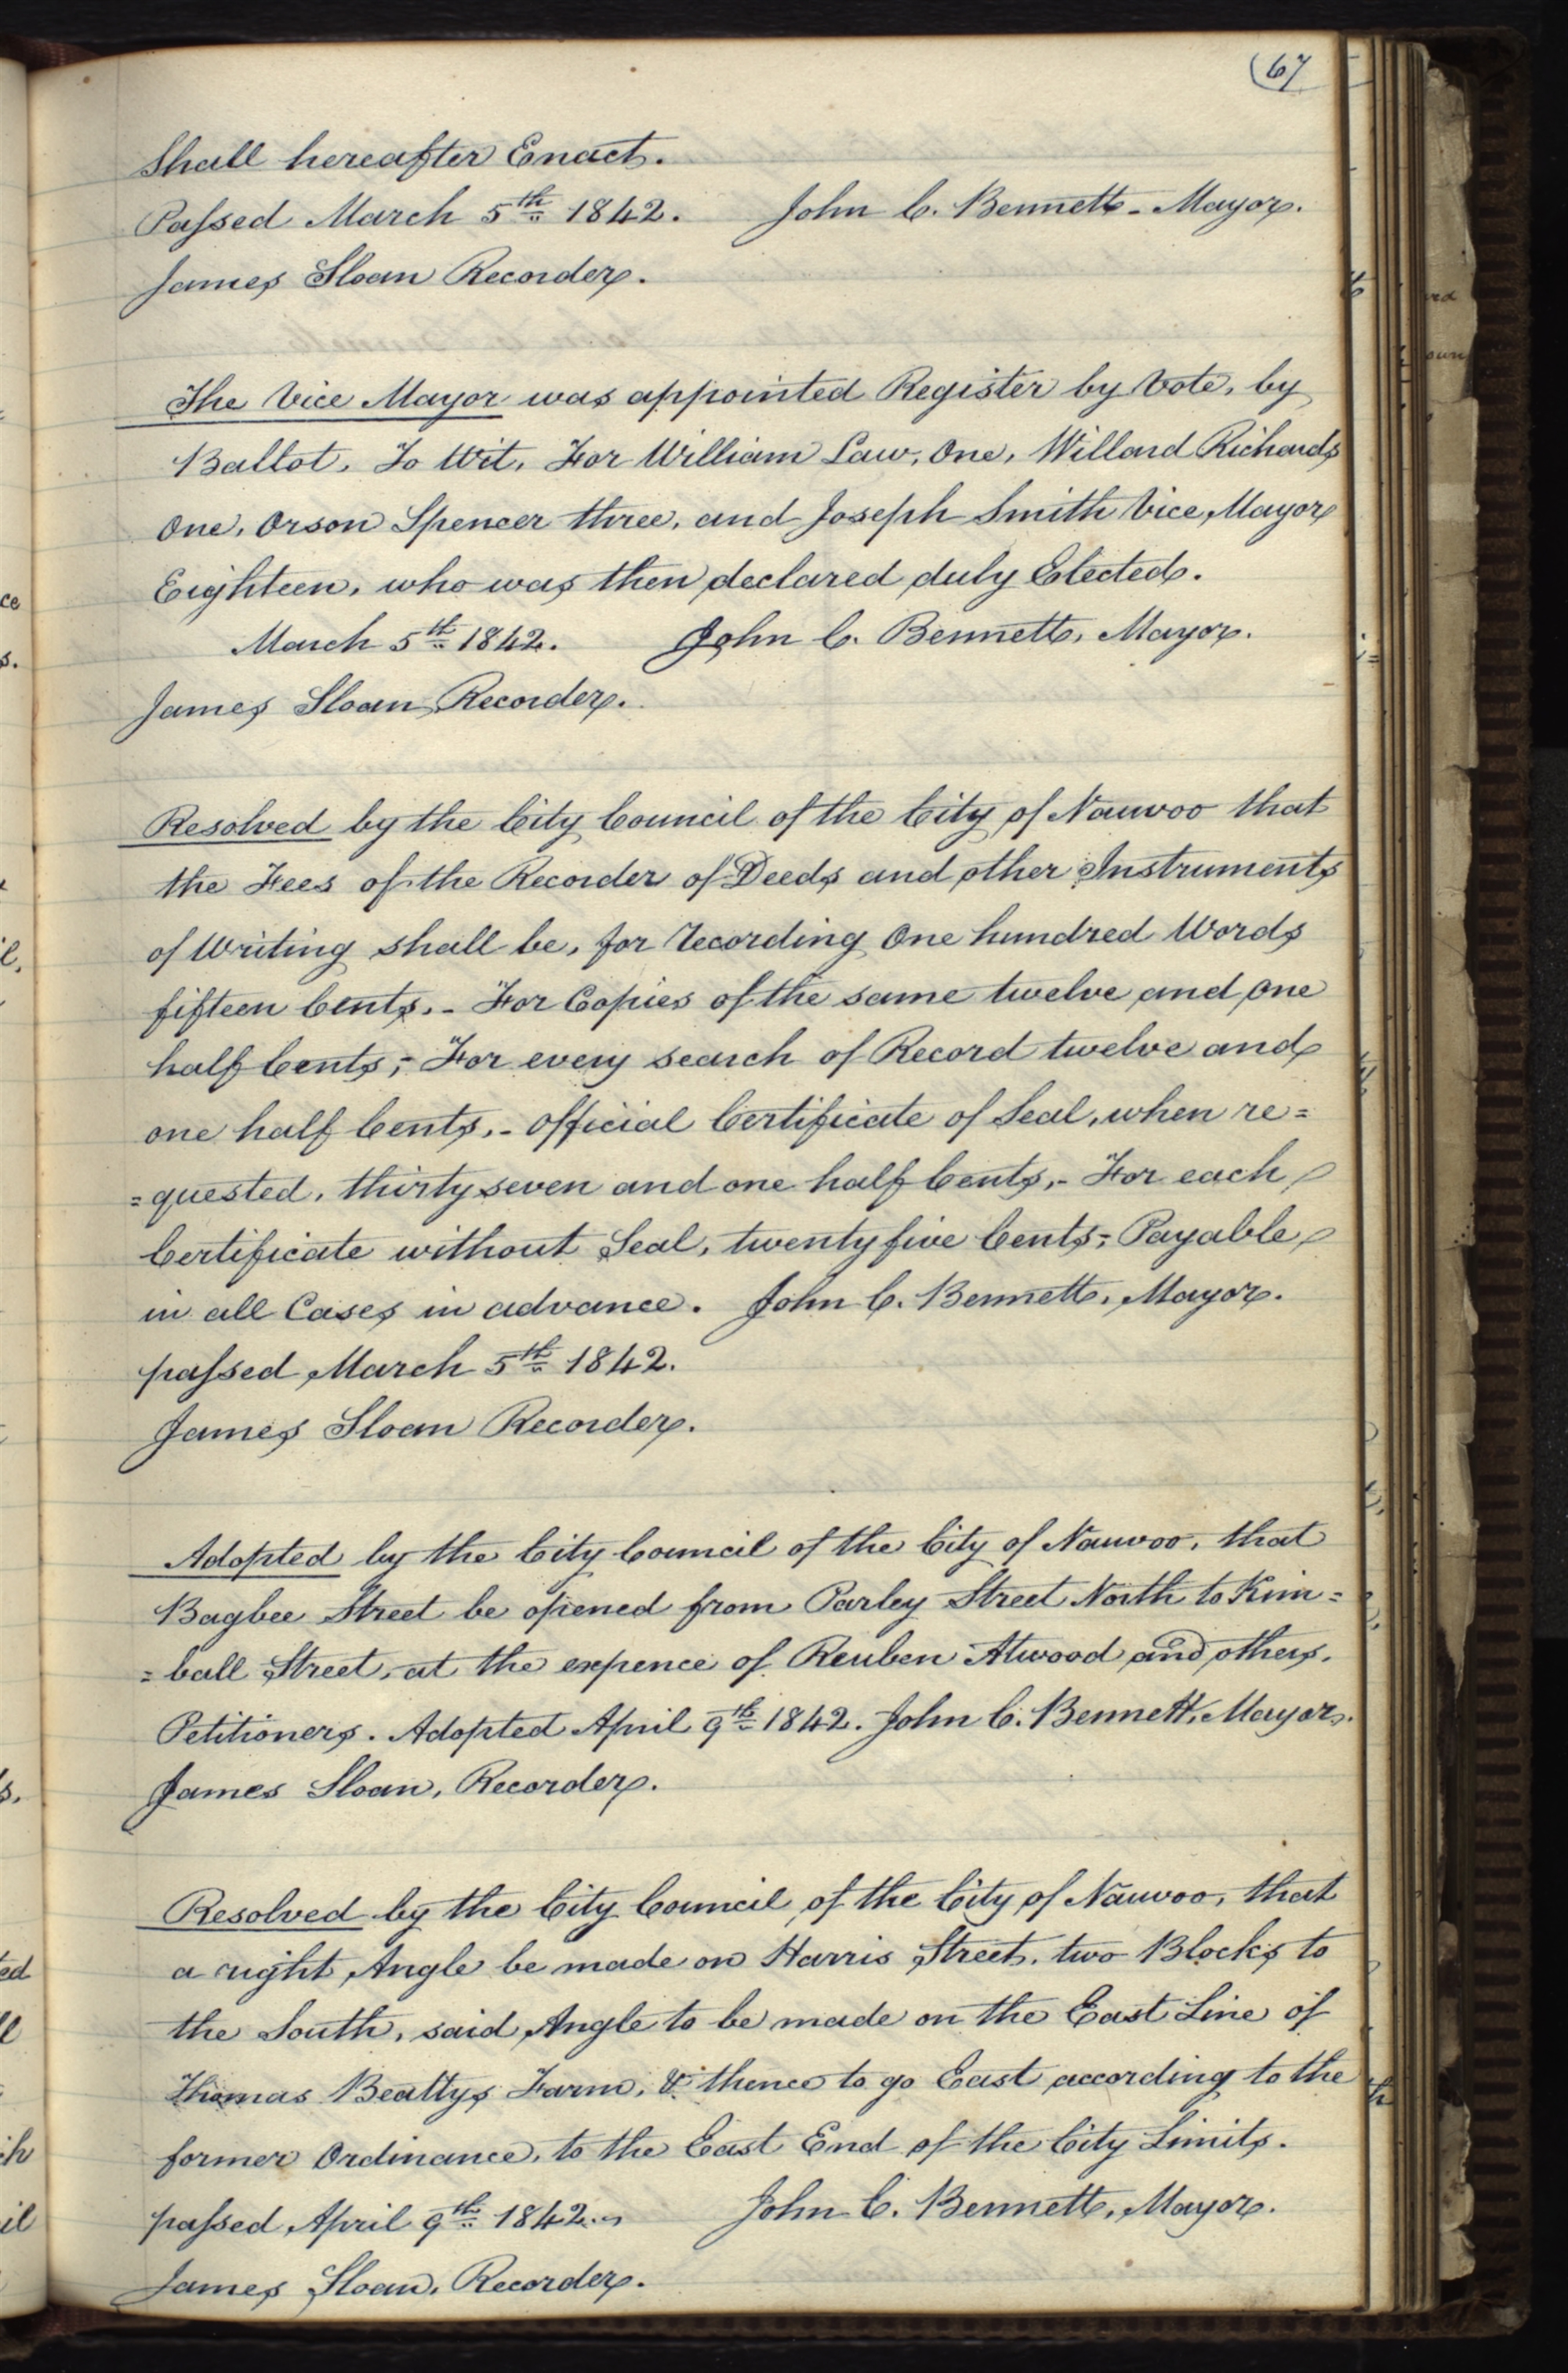 (67
Shall hereafter Enact.
Passed March 5th 1842. John C. Bennett - Mayor.
James Sloan Recorder.
The Vice Mayor was appointed Register by Vote, by
Ballot, To Wit, For William Law, One, Willard Richards
One, Orson Spencer three, and Joseph Smith Vice Mayor
Eighteen, who was then declared duly Elected.
March 5th 1842. John C. Bennett, Mayor.
James Sloan Recorder.
Resolved by the City Council of the City of Nauvoo that
the Fees of the Recorder of Deeds and other Instruments
of Writing shall be, for recording One hundred Words
fifteen Cents,- For Copies of the same twelve and one
half Cents;- For every search of Record twelve and
one half Cents,- official Certificate of Seal, when re=
=quested, thirty seven and one half Cents,- For each
Certificate without Seal, twenty five Cents;- Payable
in all Cases in advance. John C. Bennett, Mayor.
passed March 5th 1842.
James Sloan Recorder.
Adopted by the City Council of the City of Nauvoo, that
Bagbee Street be opened from Parley Street North to Kim=
=ball Street, at the expence of Reuben Atwood and others,
Petitioners. Adopted April 9th 1842. John C. Bennett, Mayor.
James Sloan, Recorder.
Resolved by the City Council of the City of Nauvoo, that
a right Angle be made on Harris Street, two Blocks to
the South, said Angle to be made on the East Line of
Thomas Beattys Farm, & thence to go East according to the
former Ordinance, to the East End of the City Limits.
passed April 9th 1842. John C. Bennett, Mayor.
James Sloan, Recorder.